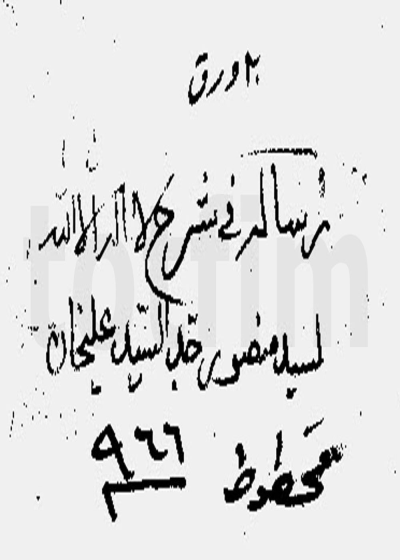 ٢٠ ورق
رسالة في شرح لا اله الا الله
لسيد منصور جد السيد عليخان
مخطوط ٩٦٦